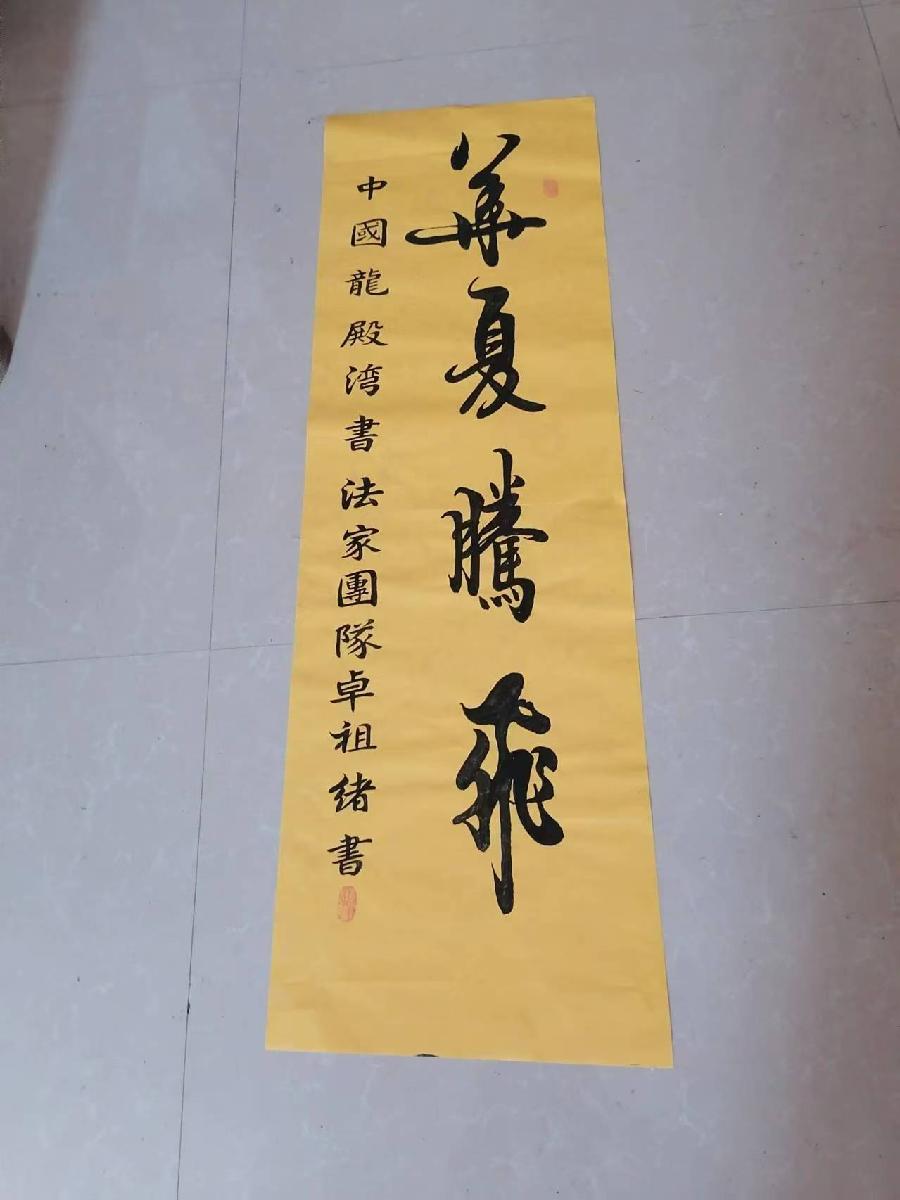 華夏騰飛
中國龍殿湾書法家團隊卓祖緒書